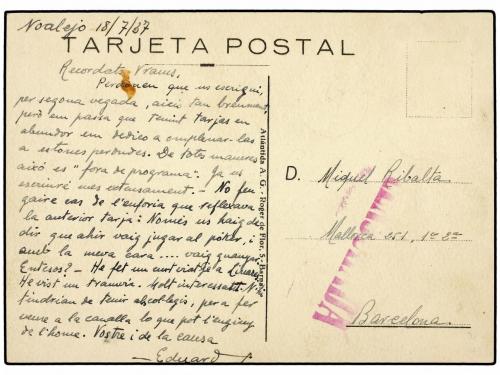 Noalejo 18/7/37
TARJETA POSTAL
Recordats Vraus.
Perdonen que us escrigui,
per segona vegada, així tan breument
però em passa que tenint tarjes en
abundor em dedico a omplenar-les
a estones perdudes. De totes maneres
això es "fora de programa". Ja us
escriuré mes extensament. - No feu
gaire cas de l'euforia que reflexava
la anterior tarja: Només us haig de
dir que ahir vaig jugar al póker, i
amb la meva cara .... vaig guanyar
Entesos? - He fet un curt viatge a Linares
He vist un tramvia. Molt interessant. Ni
tindrian de tenir als col·legis, per a fer
veure a la canalla lo que pot l'enginy
de l'home. Vostre i de la causa
- Eduard
Atlántida A. G. - Roger de Flor, 5 - Barna
D. Miquel Ribalta
Mallorca 251, 1er 2a
Barcelona.